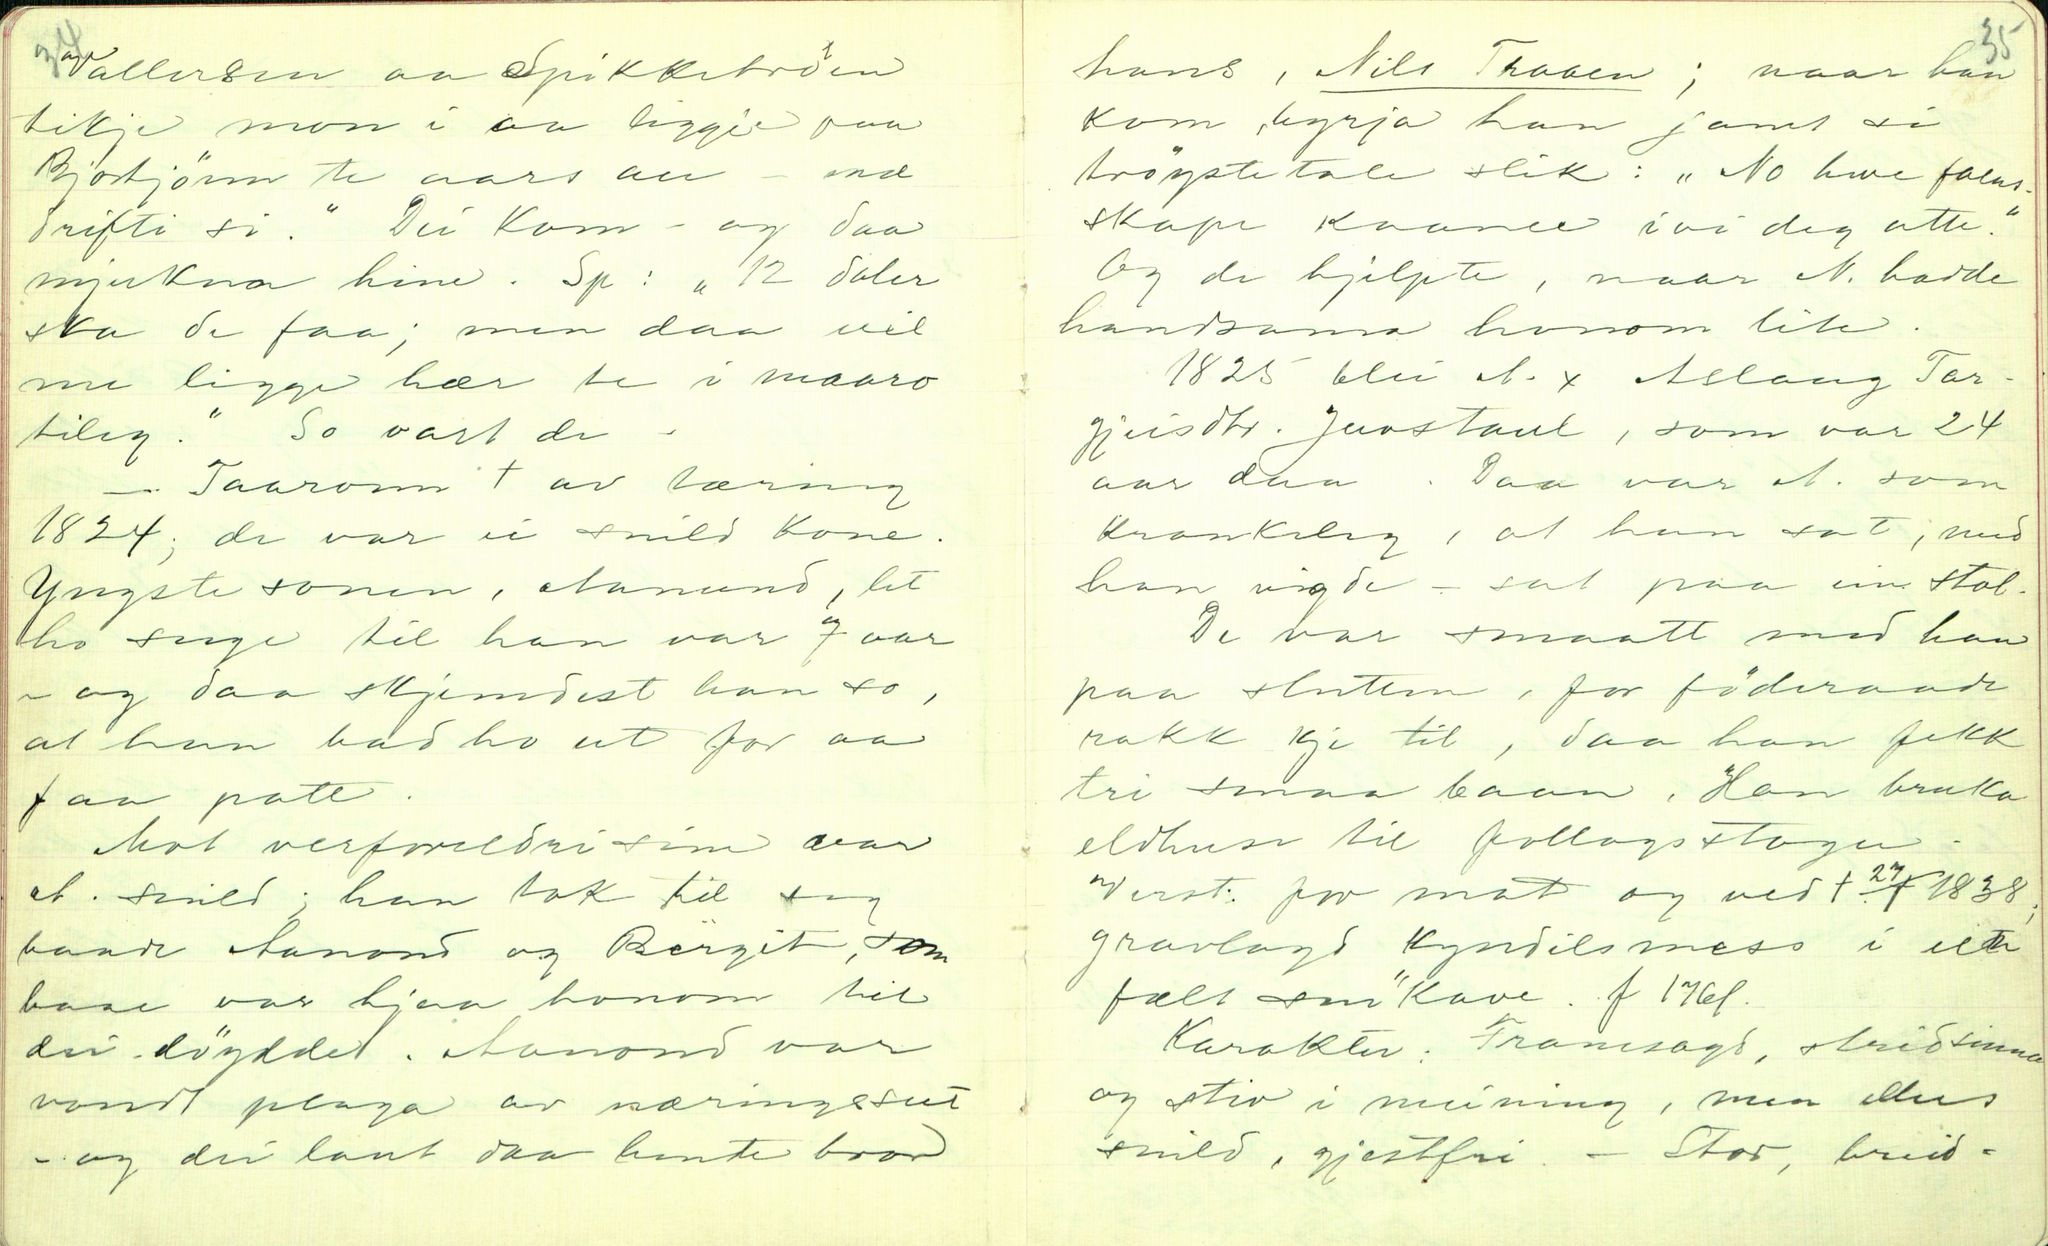 34
Vallersen aa Spikkebröen
tikje mon i aa liggje paa
Bjortjönn te aars au - mæ
drifti si." Dei kom - og daa
mjukna hine. Sp: „12 daler
ska de faa; men daa vil
me ligge hær te i maaro
tileg." So vart de -
— Taaronn † av tæring
1824; de var ei snild kone.
Yngste sonen, Aanund, let
ho suge til han var 7 aar
- og daa skjemdest han so,
at han bad ho ut for aa
faa patte.
Mot verforeldri sine var
A. snild; han tok til seg
baade Aanond og Bergit, som
baae var hjaa honom til
dei döydde. Aanond var
vondt plaga av næringssut
- og dei laut daa hente bror
35
hans, Nils Traaen; naar han
kom, byrja han jamt si
tröystetale slik: „No hve faens-
skape kaamee ivi deg atte."
Og de hjelpte, naar N. hadde
handsama honom lite.
1825 blei A. x Aslaug Tar-
gjeisdtr. Juvstaul, som var 24
aar daa. Daa var A. som
krankeleg, at han sat, med
han vigde - sat paa ein stol.
De var smaatt med han
paa sluten, for föderaade
rakk kje til, daa han fekk
tri smaa baan. Han bruka
eldhuse til follogsstoge.
Verst. for mat og ved † 27/1 1838;
gravlagd Kyndilsmess i eit
fælt snökave. f 1761.
Karakter: Framsagd, stridsinna
og stiv i meining, men elles
snild, gjestfri. - Stor, breid-